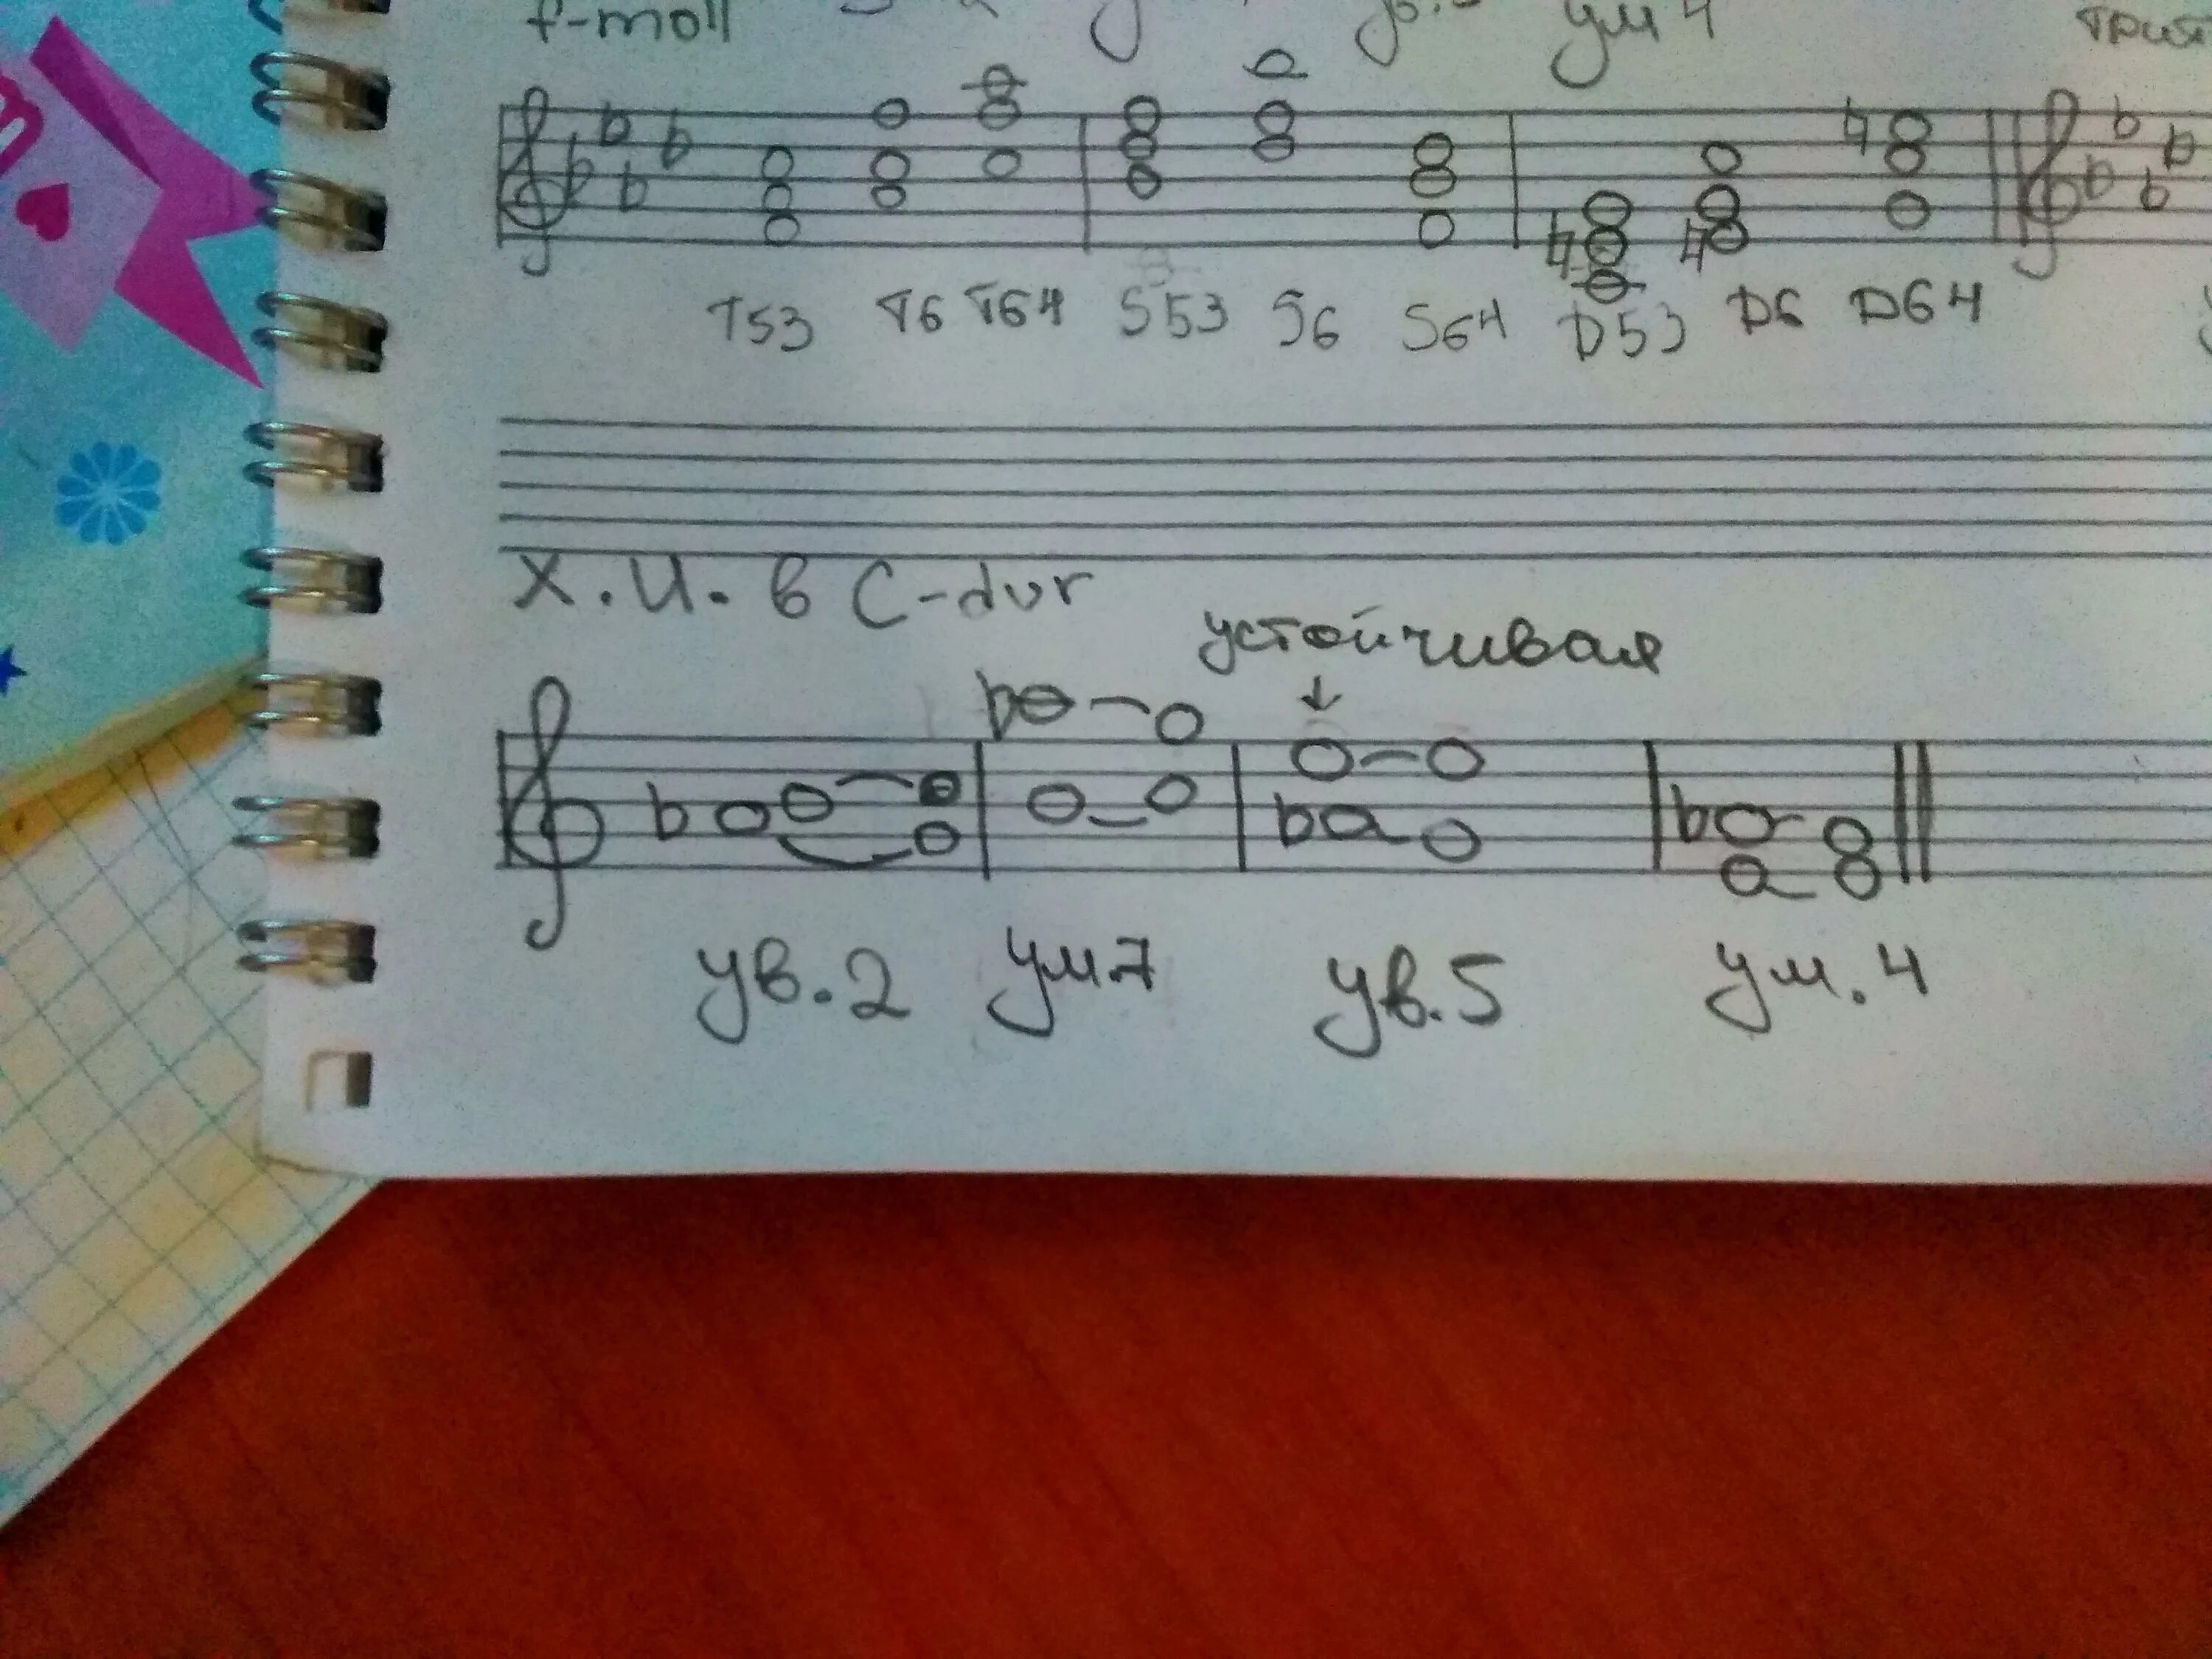 f-moll ум 4
T53 T6 T64 S53 S6 S64 D53 D6 D64
Х.И. в C-dur
устойчивая
ув.2 ум.7 ув.5 ум.4